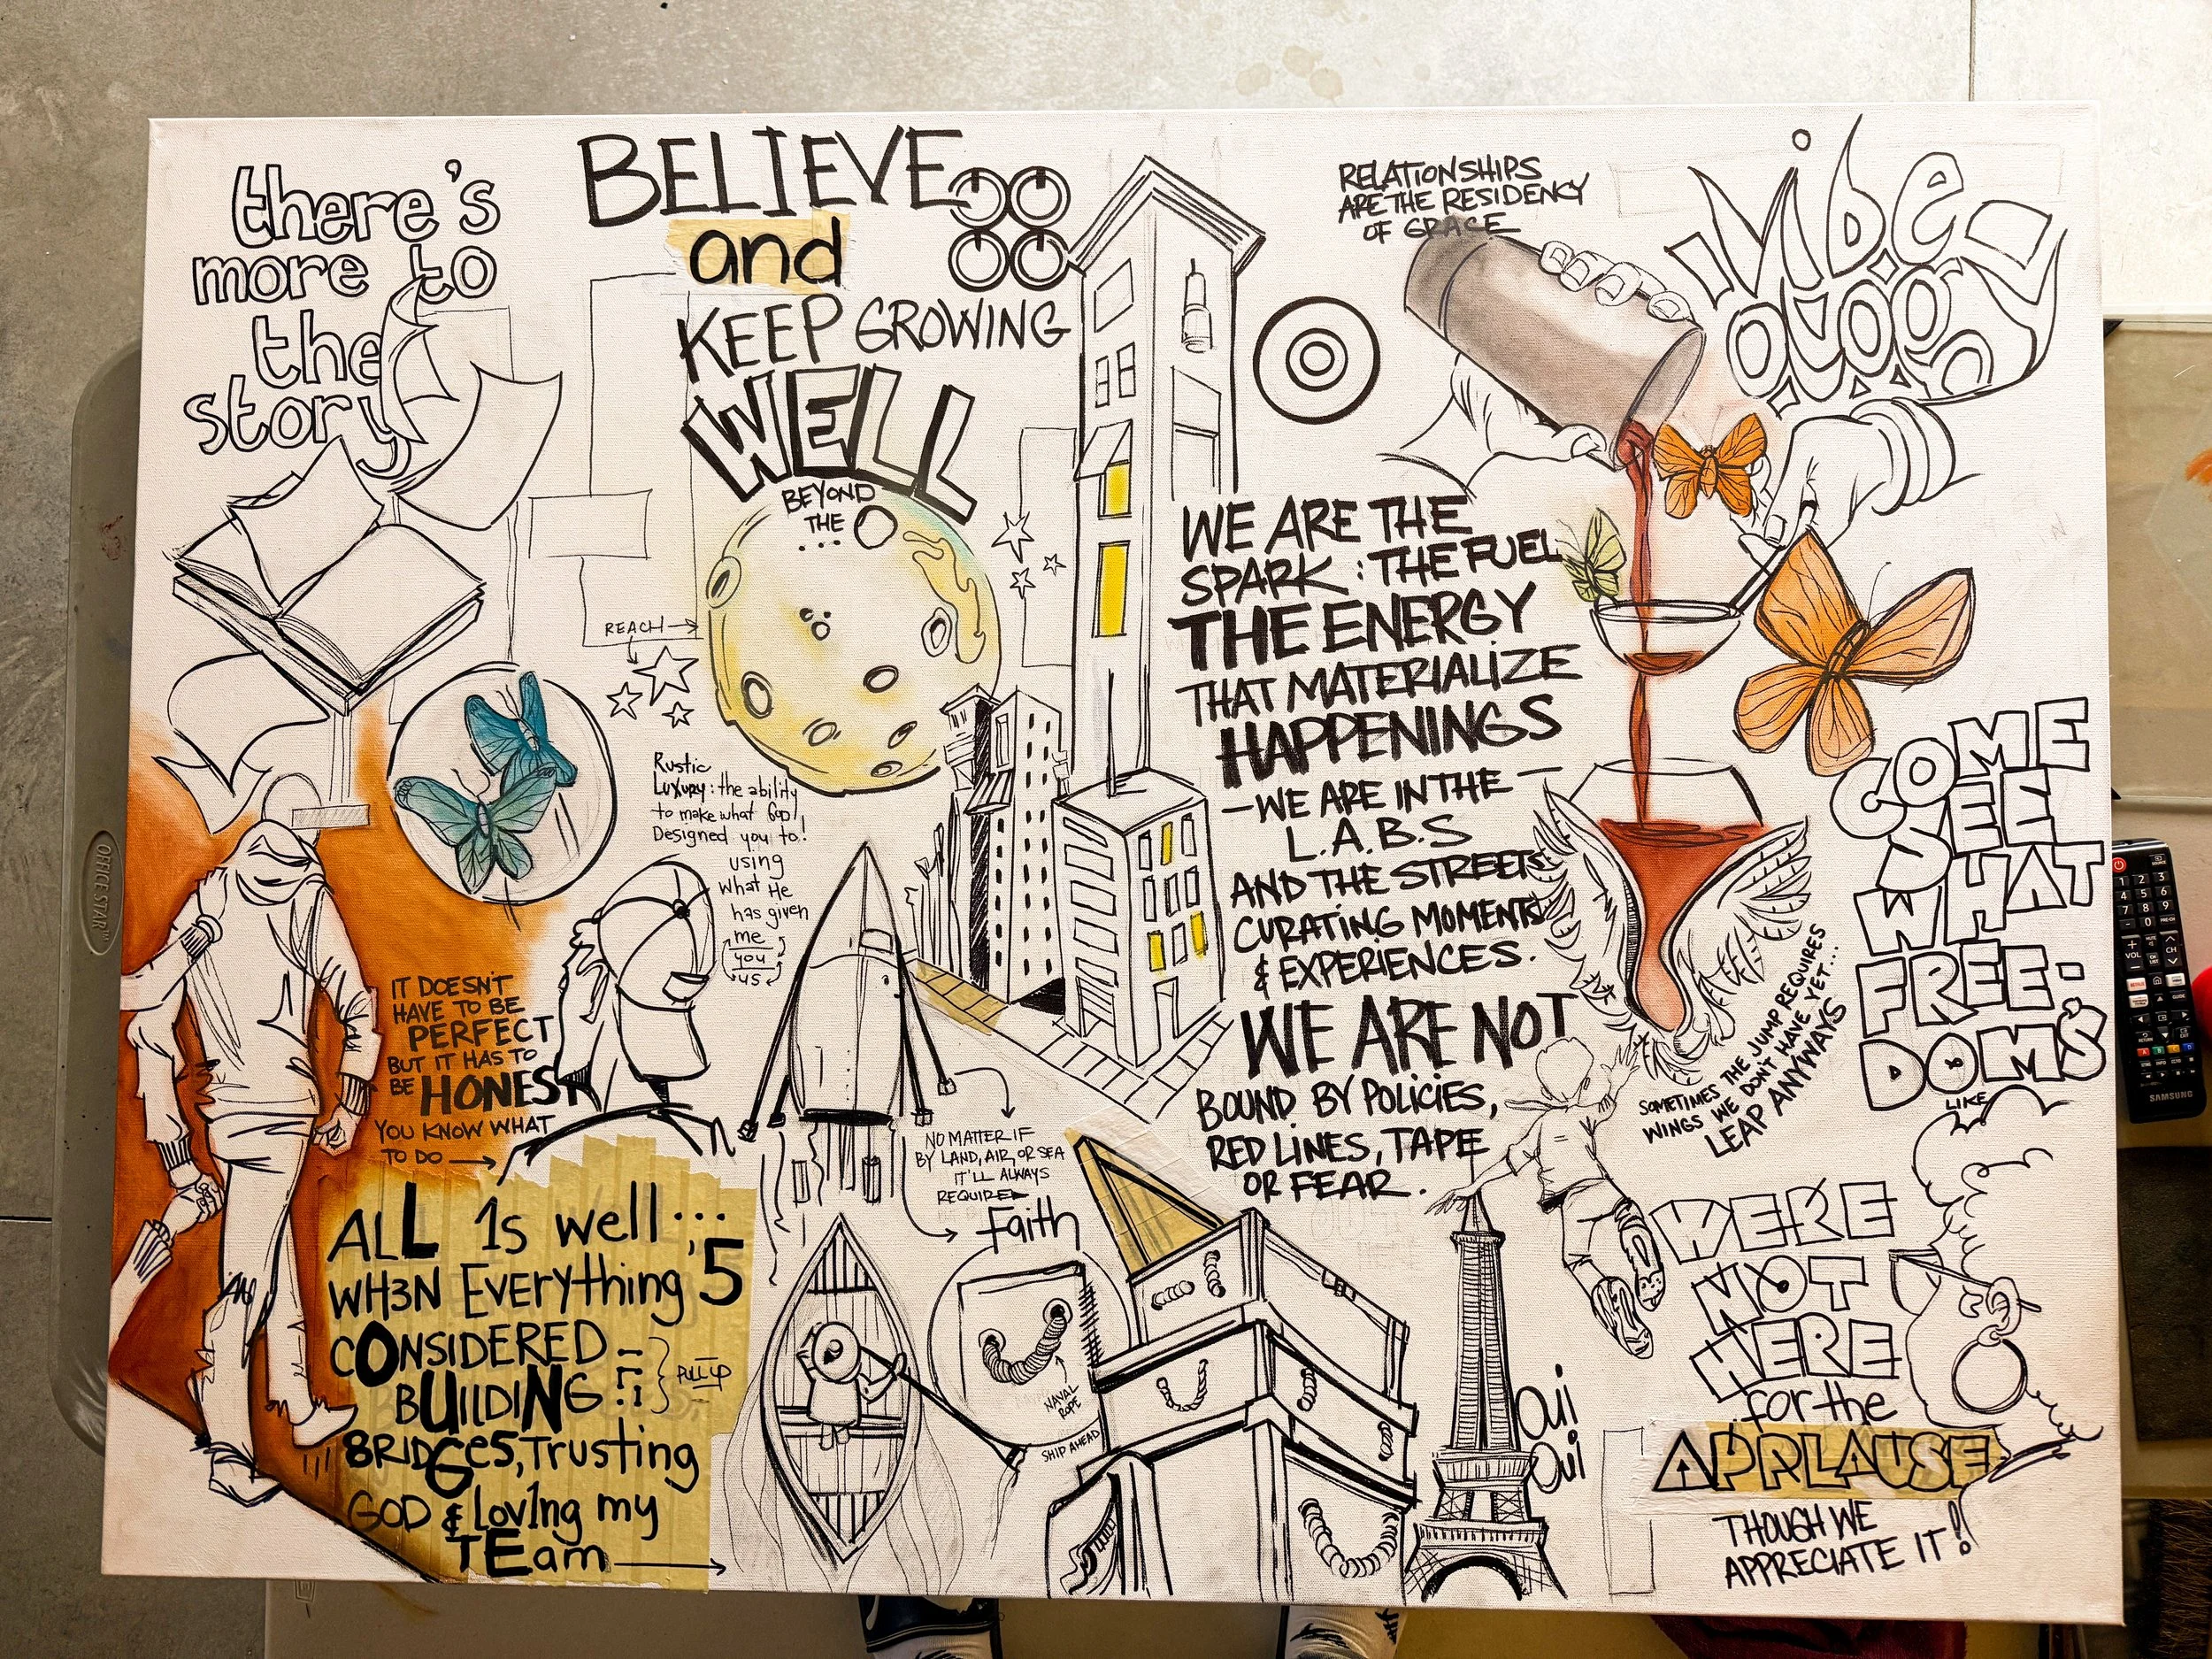 there's
more to
the
story
BELIEVE
and
KEEP GROWING
WELL
BEYOND
THE
...
REACH
Rustic
Luxury: the ability
to make what God
Designed you to!
using
what He
has given
me
you
us
IT DOESN'T
HAVE TO BE
PERFECT
BUT IT HAS TO
BE HONEST
YOU KNOW WHAT
TO DO
ALL 1s well...
WH3N Everything '5
CONSIDERED
BUILDING
PULL UP
BRIDGe5, Trusting
GOD & Lov1ng my
TEam
NO MATTER IF
BY LAND, AIR, OR SEA
IT'LL ALWAYS
REQUIRE
Faith
NAVAL
ROPE
SHIP AHEAD
RELATIONSHIPS
ARE THE RESIDENCY
OF GRACE
vibe
ology
WE ARE THE
SPARK: THE FUEL
THE ENERGY
THAT MATERIALIZE
HAPPENINGS
-WE ARE IN THE-
L.A.B.S
AND THE STREETS
CURATING MOMENTS
& EXPERIENCES.
WE ARE NOT
BOUND BY POLICIES,
RED LINES, TAPE
OR FEAR.
SOMETIMES THE JUMP REQUIRES
WINGS WE DON'T HAVE YET...
LEAP ANYWAYS
COME
SEE
WHAT
FREE-
DOM'S
LIKE
OUI
OUI
WERE
NOT
HERE
for the
APPLAUSE
THOUGH WE
APPRECIATE IT!
OFFICE STAR
SAMSUNG